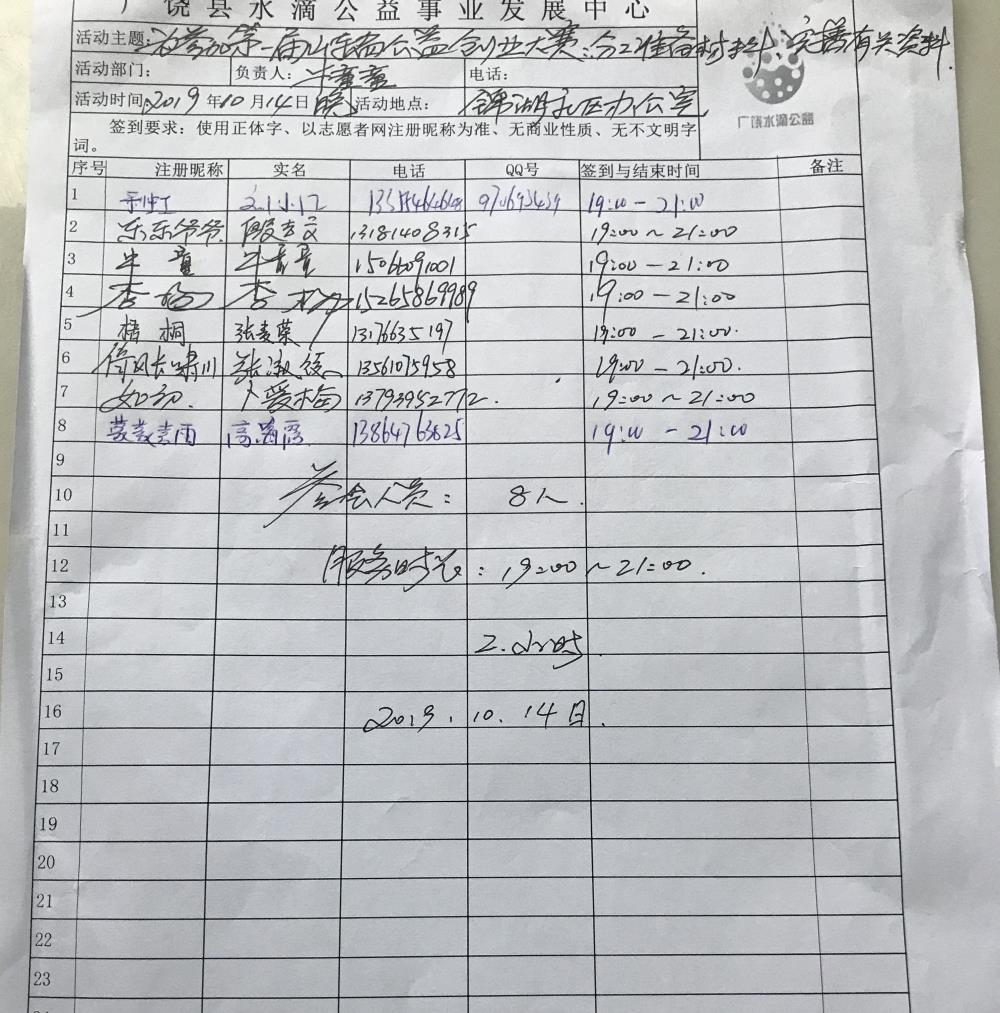 广饶县水滴公益事业发展中心
活动主题: 第一届山东省公益创业大赛:分工准备材料,完善有关资料.
活动部门: 负责人:牛童童 电话:
活动时间:2019年10月14日晚 活动地点: 锦湖社区办公室
广饶水滴公益
签到要求:使用正体字、以志愿者网注册昵称为准、无商业性质、无不文明字
词。
序号 注册昵称 实名 电话 QQ号 签到与结束时间 备注
1 19:00-21:00
2 乐乐爷爷 13181408315 19:00~21:00
3 牛童 牛童童 15066091001 19:00-21:00
4 李杨 李杨 15265869989 19:00-21:00
5 梧桐 张麦荣 13176635197 19:00-21:00.
6 张淑 13561075958 19:00-21:00.
7 如初. 卜爱梅 13793952772. 19:00~21:00
8 13864763625 19:00-21:00
9
10 参会人员: 8人.
11
12 服务时长:19:00~21:00.
13
14 2.小时.
15
16 2019.10.14日.
17
18
19
20
21
22
23